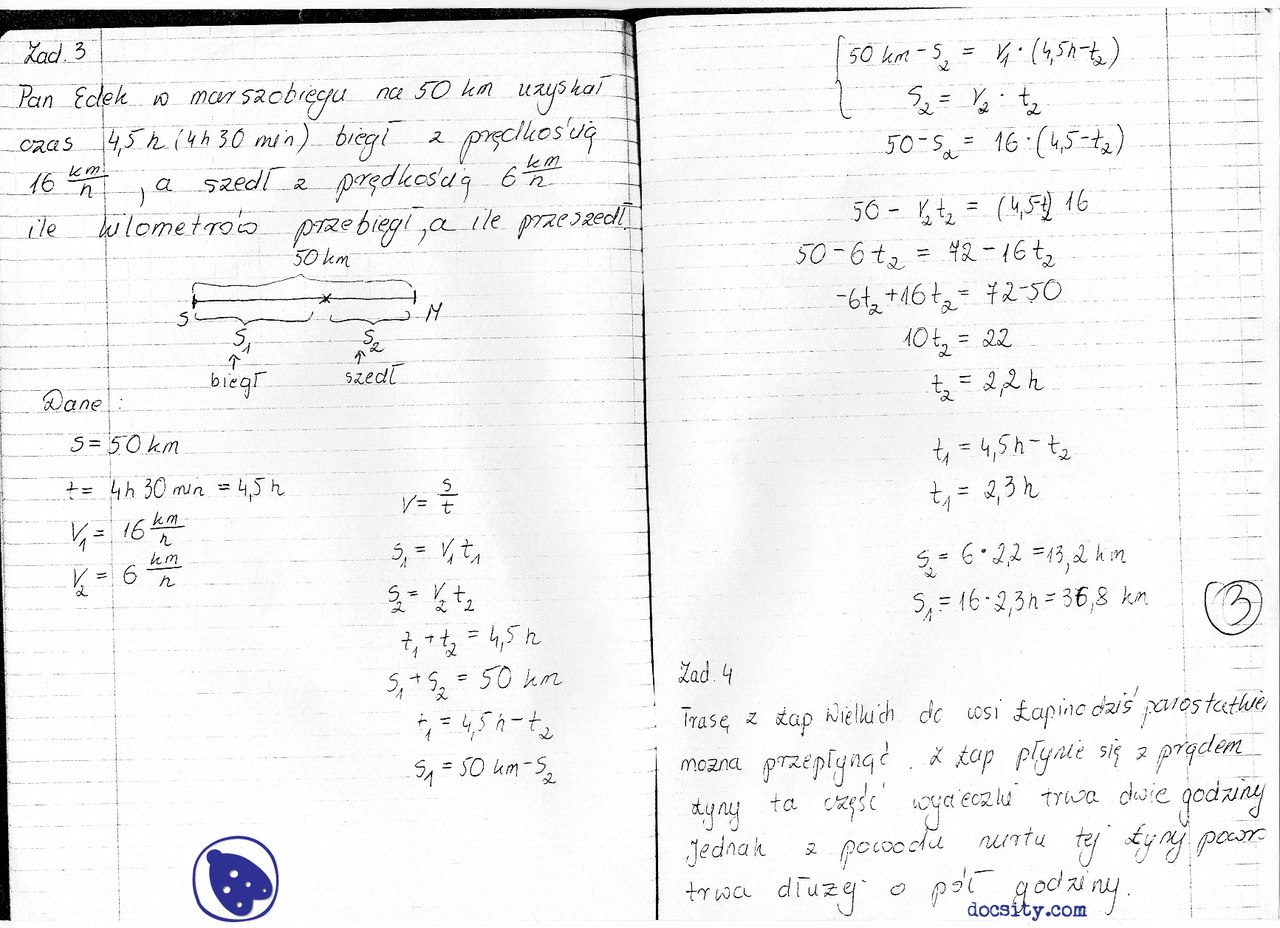 Zad. 3
Pan Edek w marszobiegu na 50 km uzyskał
czas 4,5 h (4h 30 min) biegł z prędkością
16 km/h, a szedł z prędkością 6 km/h
ile kilometrów przebiegł, a ile przeszedł
50 km
S M
S₁ S₂
↑ ↑
biegł szedł
Dane:
s = 50 km
t = 4h 30 min = 4,5 h
V₁ = 16 km/h
V₂ = 6 km/h
V = s/t
S₁ = V₁ t₁
S₂ = V₂ t₂
t₁ + t₂ = 4,5 h
S₁ + S₂ = 50 km
t₁ = 4,5 h - t₂
S₁ = 50 km - S₂
50 km - S₂ = V₁ · (4,5h - t₂)
S₂ = V₂ · t₂
50 - S₂ = 16 · (4,5 - t₂)
50 - V₂t₂ = (4,5-t) 16
50 - 6t₂ = 72 - 16t₂
-6t₂ + 16t₂ = 72-50
10t₂ = 22
t₂ = 2,2 h
t₁ = 4,5h - t₂
t₁ = 2,3 h
S₂ = 6 · 2,2 = 13,2 km
S₁ = 16 · 2,3h = 36,8 km
3
Zad. 4
Trasę z Łap Wielkich do wsi Łapino dziś parostatkiem
można przepłynąć. Z Łap płynie się z prądem
Łyny ta część wycieczki trwa dwie godziny
Jednak z powodu nurtu tej Łyny
trwa dłużej o pół godziny.
docsity.com